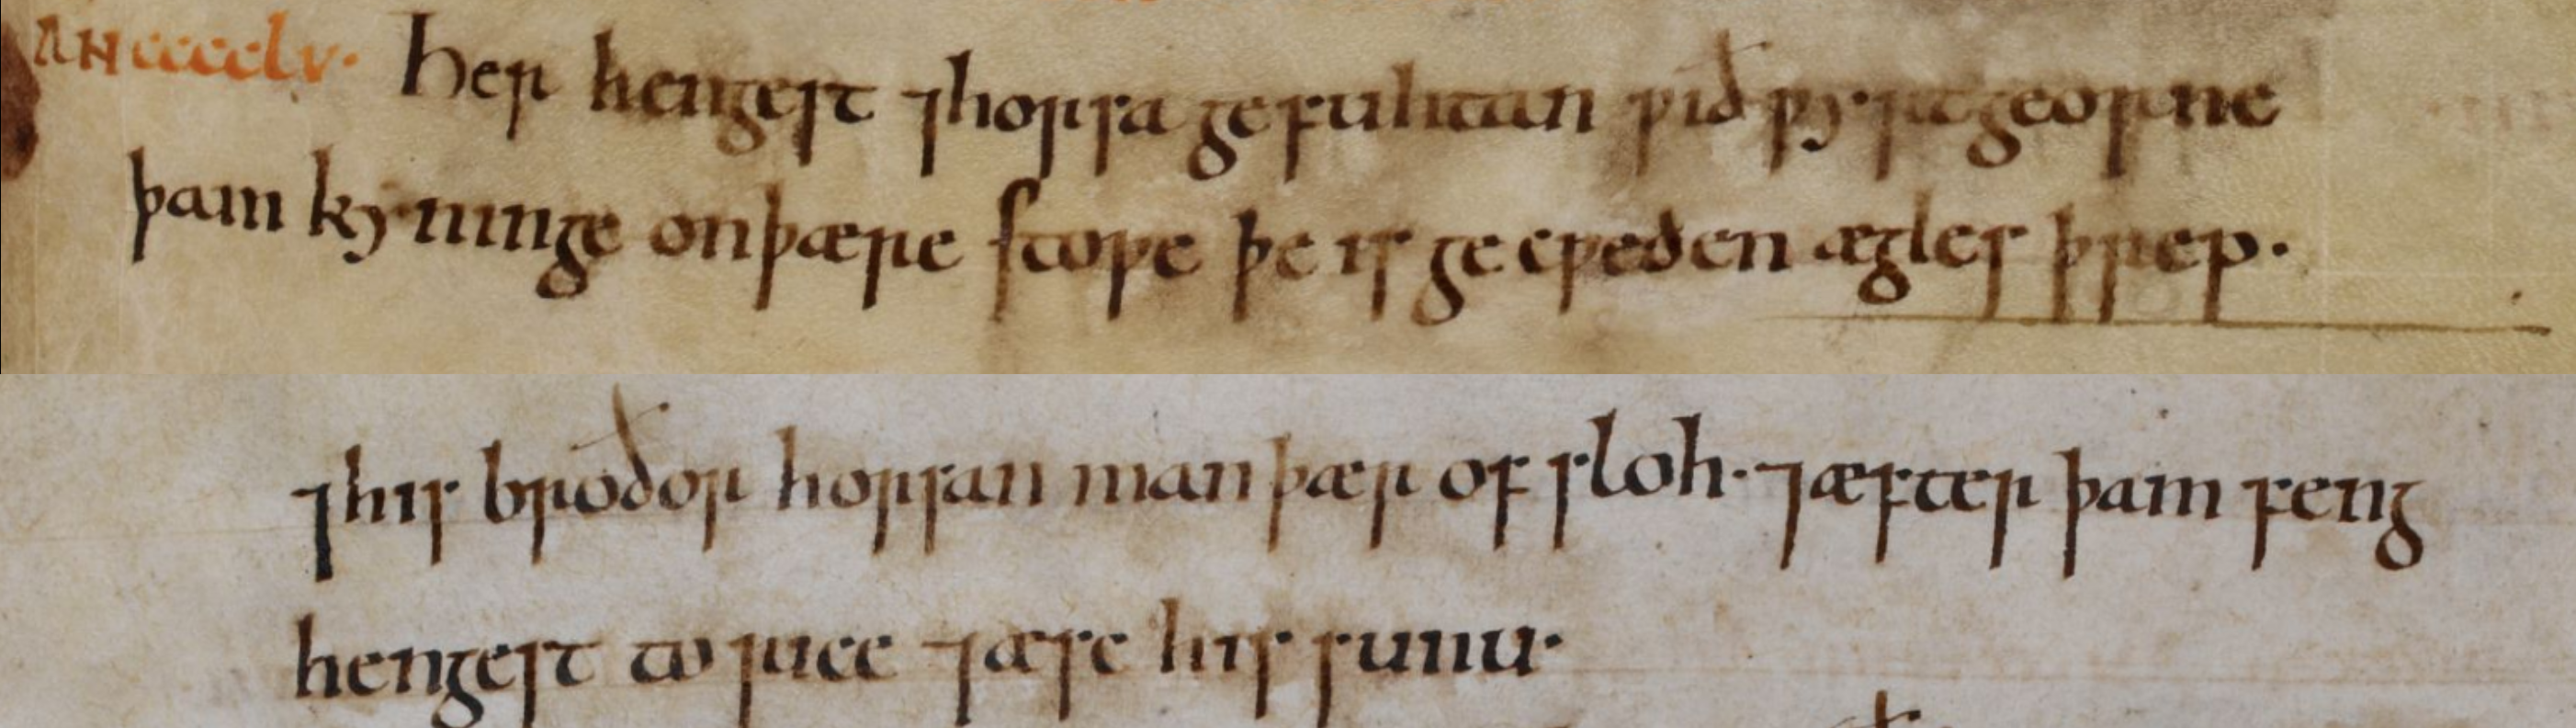 AN cccclv. Her hengest ⁊ horsa gefuhtan ƿið ƿyrtgeorne
þam kyninge on þære stoƿe þe is gecƿeden ægles þrep.
⁊ his broðor horsan man þær of sloh. ⁊ æfter þam feng
hengest to rice ⁊ æsc his sunu.